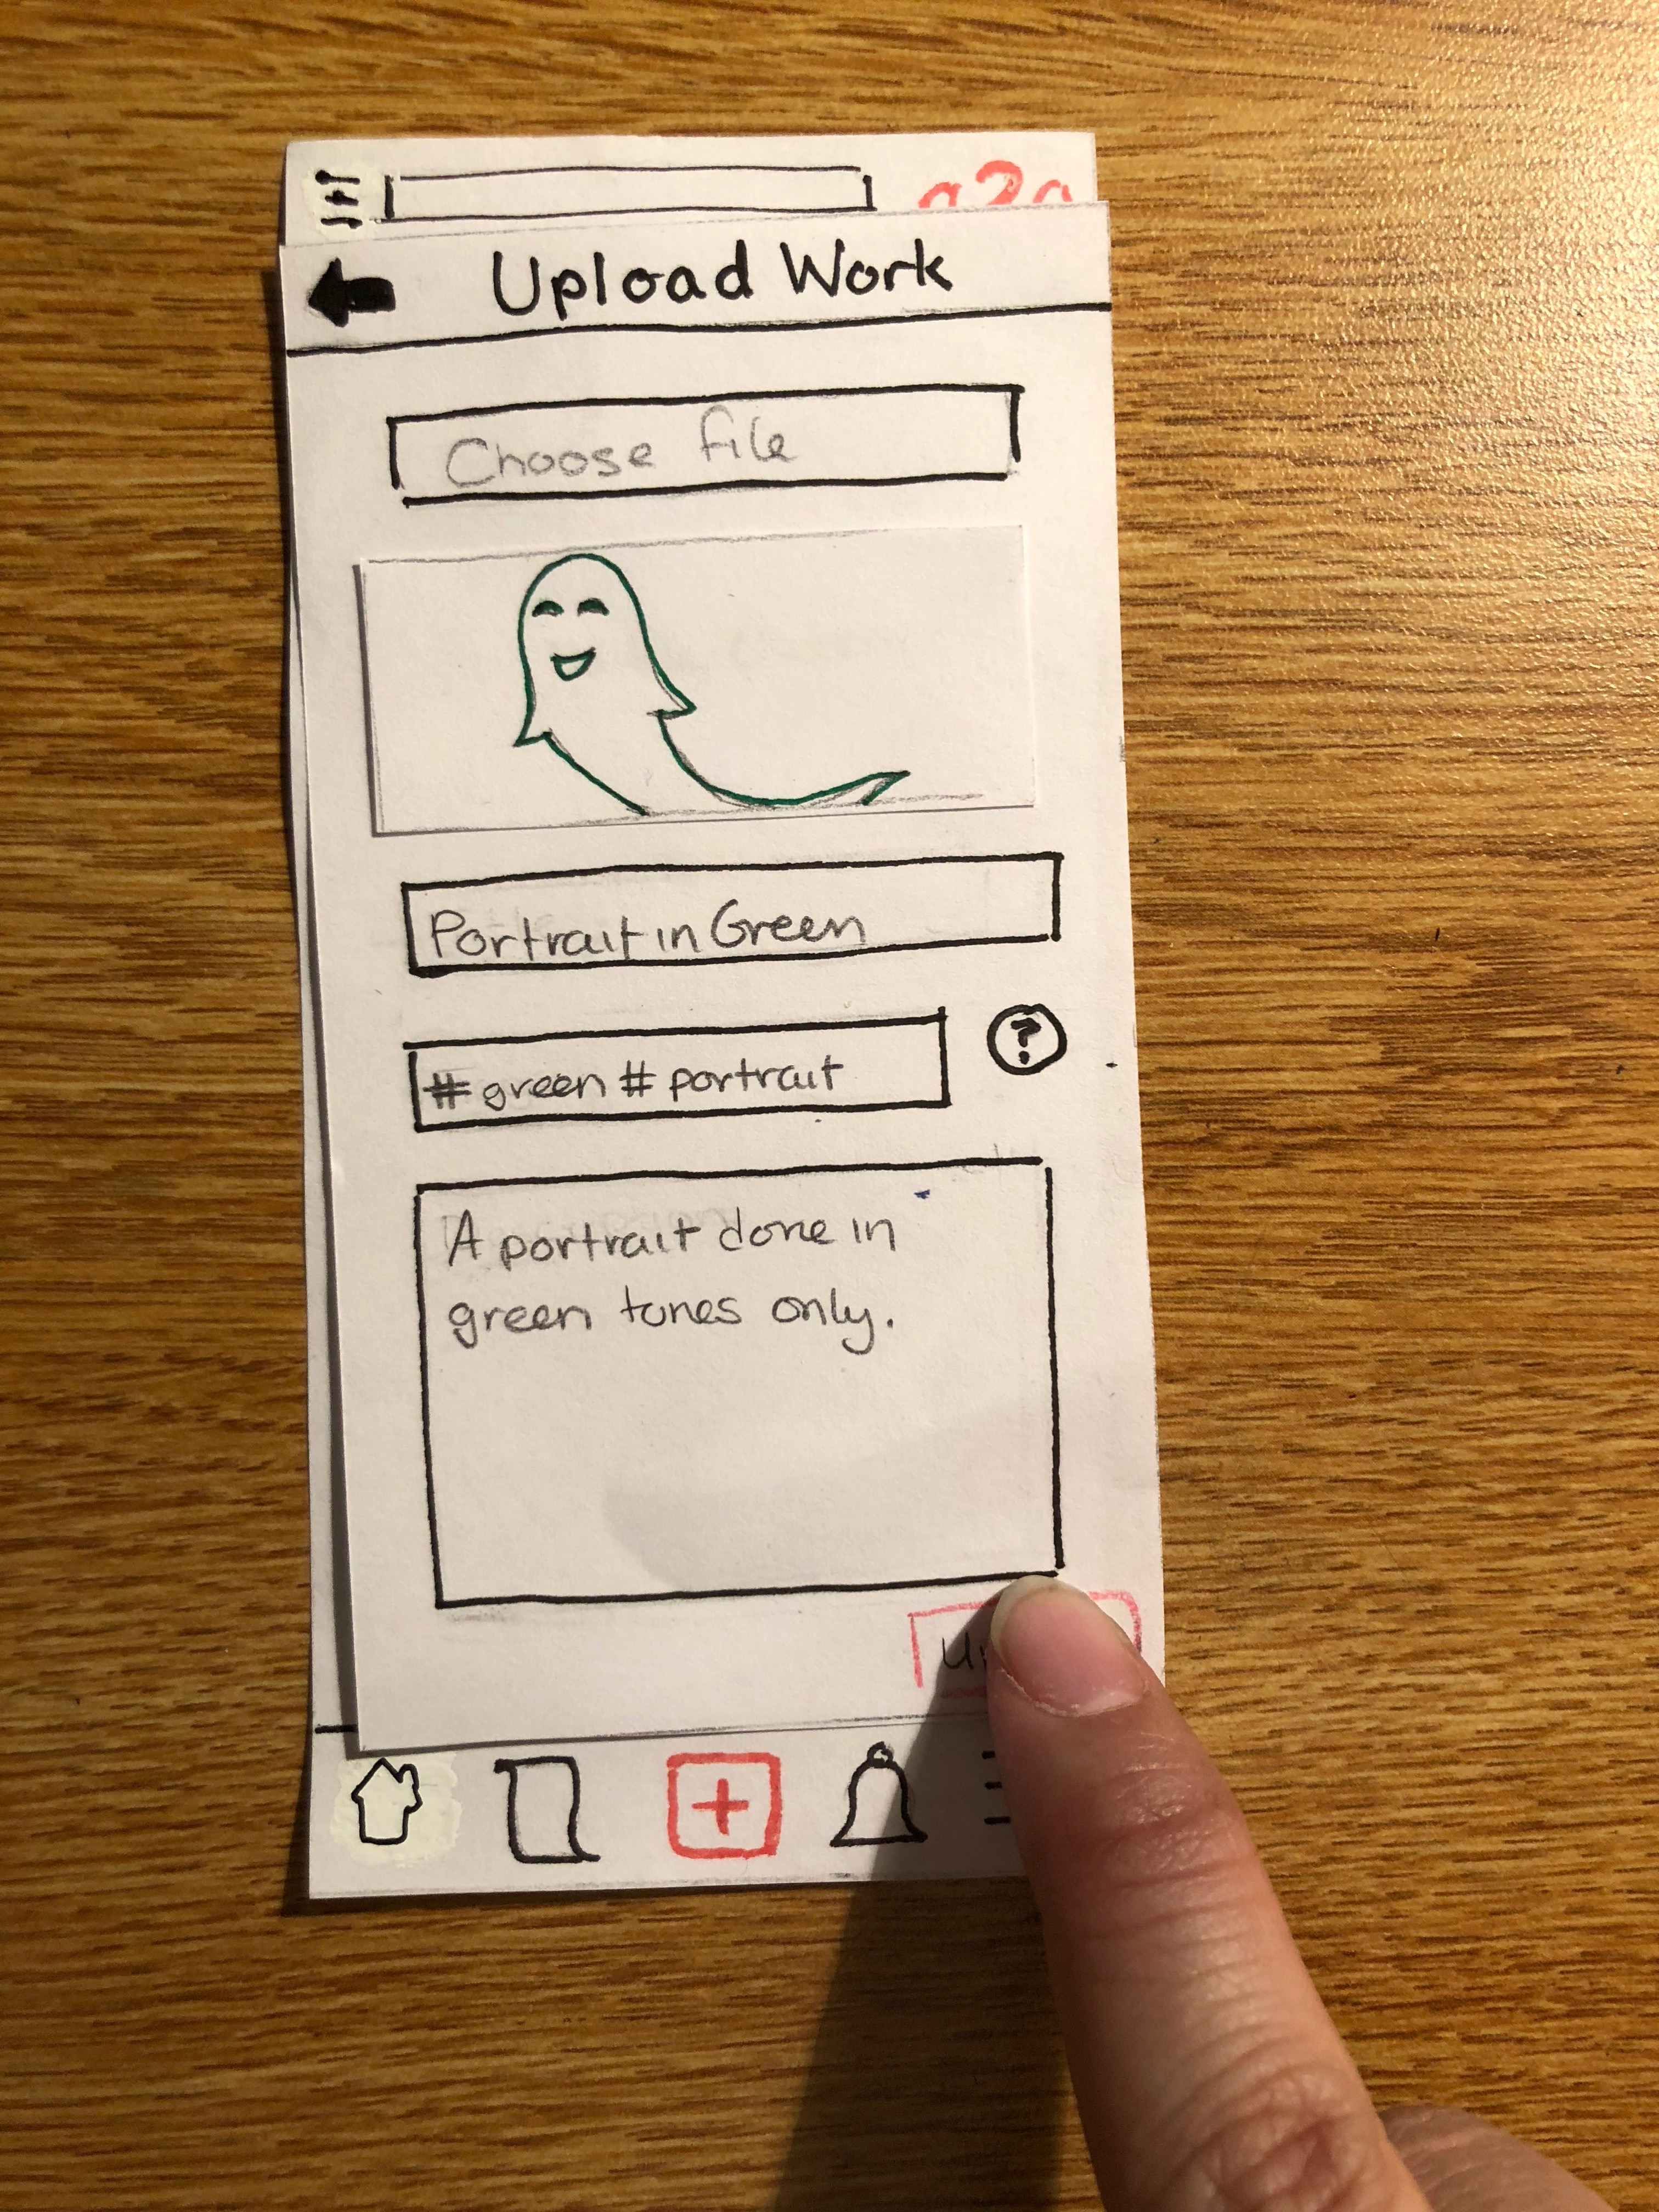 Upload Work
Choose file
Portrait in Green
#green #portrait
?
A portrait done in
green tones only.